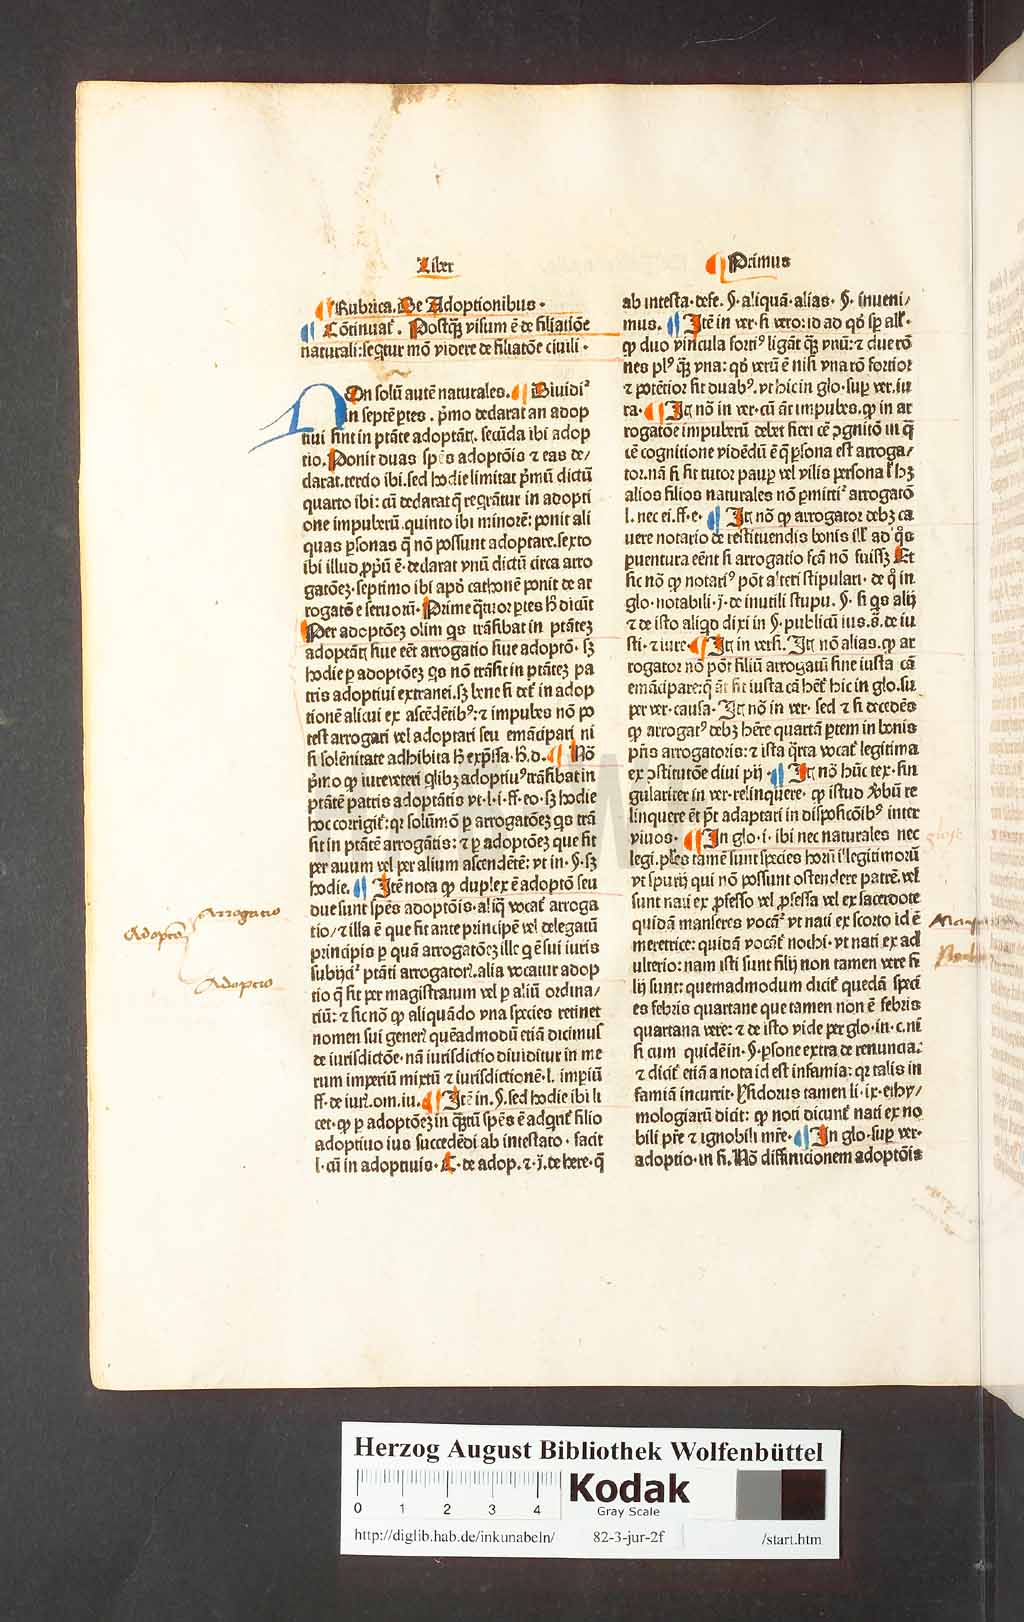 Liber
Primus
Rubrica. De Adoptionibus.
Cōtinuat᷑. Postq̄ȝ visum ē de filiatiōe
naturali: seq̄tur mō videre de filiatōe ciuili.
NOn solū autē naturales. Diuidi᷑
in septē ꝑtes. p̄mo declarat an adop
tiui sint in ptāte adoptātꝭ. secūda ibi adop
tio. Ponit duas spēs adoptōis ⁊ eas de/
clarat. tertio ibi. sed hodie limitat p̄mū dictū
quarto ibi: cū declarat q̄ reqrātur in adopti
one impuberū. quinto ibi minorē: ponit ali
quas ꝑsonas q̄ nō possunt adoptare. sexto
ibi illud ꝓpriū ē. declarat vnū dictū circa arro
gatōeȝ. septimo ibi apō cathonē ponit de ar
rogatōe seruorū. Prime q̄tuor ꝑtes h̄ dicūt
Per adoptōeȝ olim qs trāsibat in ptāteȝ
adoptātꝭ siue eēt arrogatio siue adoptō. sȝ
hodie ꝑ adoptōeȝ qs nō trāsit in ptāteȝ pa
tris adoptiui extranei. sȝ bene si det᷑ in adop
tionē alicui ex ascēdētibꝰ: ⁊ impubes nō po
test arrogari vel adoptari seu emācipari ni
si solēnitate adhibita h̄ exp̄ssa. h. d. Nō
p̄mo ꝙ iure veteri qlibȝ adoptiuꝰ trāsibat in
ptātē patris adoptātis vt. l. i. ff. eo. sȝ hodie
hoc corrigit᷑: qꝛ solūmō ꝑ arrogatōeȝ qs trā
sit in ptātē arrogātis: ⁊ ꝑ adoptōeȝ que fit
per auum vel per alium ascendētē: vt in. §. sȝ
hodie. Itē nota ꝙ duplex ē adoptō seu
due sunt spēs adoptōis. aliq̄ vocat᷑ arroga
tio/ ⁊ illa ē que fit ante principē vel delegatū
principis ꝑ quā arrogatōeȝ ille q ē sui iuris
subijcit᷑ ptāti arrogatorꝭ. alia vocatur adop
tio q̄ fit per magistratum vel ꝑ aliū ordina/
riū: ⁊ sic nō ꝙ aliquādo vna species retinet
nomen sui generꝭ quēadmodū etiā dicimus
de iurisdictōe. nā iurisdictio diuiditur in me
rum imperiū mixtū ⁊ iurisdictionē. l. imꝑiū
ff. de iurꝭ. om. iu. Itē in. §. sed hodie ibi li
cet. ꝙ ꝑ adoptōeȝ in q̄rtū spēs ē adqrit᷑ filio
adoptiuo ius succedēdi ab intestato. facit
l. cū in adoptiuis. C. de adop. ⁊. j. de here. q̄
ab intesta. defe. §. aliquā. alias. §. inueni/
mus. Itē in ver. si vero: id ad qđ sꝑ all᷑.
ꝙ duo vincula fortiꝰ ligāt q̄ȝ vnū: ⁊ due rō
nes plꝰ q̄ȝ vna: qđ verū ē nisi vna rō fortior
⁊ potētior sit duabꝰ. vt hic in glo. suꝑ ver. iu
ra. Itꝭ nō in ver. cū āt impubes. ꝙ in ar
rogatōe impuberū debet fieri cē ꝯgnitō in q̄
cē cognitione vidēdū ē q̄ ꝑsona est arroga/
tor. nā si sit tutor pauꝑ vel vilis persona l᷑ hȝ
alios filios naturales nō ꝑmitti᷑ arrogatō
l. nec ei. ff. e. Itꝭ nō ꝙ arrogator debȝ ca
uere notario de restituendis bonis ill᷑ ad q̊s
ꝑuentura eēnt si arrogatio fcā nō fuissȝ Et
sic nō ꝙ notariꝰ pōt alteri stipulari. de q̊ in
glo. notabili. j. de inutili stupu. §. si qs alij
⁊ de isto aliqd dixi in §. publicū ius. s̄. de iu
sti. ⁊ iure. Itꝭ in versi. Itꝭ nō alias. ꝙ ar
rogator nō pōt filiū arrogatū sine iusta cā
emācipare: q̄ āt sit iusta cā hēt᷑ hic in glo. su
per ver. causa. Itꝭ nō in ver. sed ⁊ si decedēs
ꝙ arrogatꝰ debȝ hēre quartā ꝑtem in bonis
pn̄s arrogatoris: ⁊ ista q̄rta vocat᷑ legitima
ex ꝯstitutōe diui pij. Itꝭ nō hūc tex. sin
gulariter in ver. relinquere. ꝙ istud ꝟbū re
linquere ēt pōt adaptari in dispositōibꝰ inter
viuos. In glo. i. ibi nec naturales nec
legi. ples tamē sunt species horū illegitimorū
vt spurij qui nō possunt ostendere patrē. vel
sunt nati ex ꝓfesso vel ꝓfessa vel ex sacerdote
quidā manseres vocāt᷑ vt nati ex scorto id ē
meretrice: quidā vocāt᷑ nothi. vt nati ex ad
ulterio: nam isti sunt filij non tamen vere fi
lij sunt: quemadmodum dicit᷑ quedā speci
es febris quartane que tamen non ē febris
quartana vere: ⁊ de isto vide per glo. in. c. ni
si cum quidē in. §. ꝑsone extra de renuncia.
⁊ dicit᷑ etiā a nota id est infamia: qꝛ talis in
famiā incurrit. Ysidorus tamen li. ix. ethy/
mologiarū dicit: ꝙ noti dicunt᷑ nati ex no
bili pr̄e ⁊ ignobili mr̄e. In glo. suꝑ ver.
adoptio. in fi. Nō diffinicionem adoptōis
Arrogatio
Adoptō
Adoptio
Herzog August Bibliothek Wolfenbüttel
0 1 2 3 4
Kodak
Gray Scale
http://diglib.hab.de/inkunabeln/ 82-3-jur-2f /start.htm